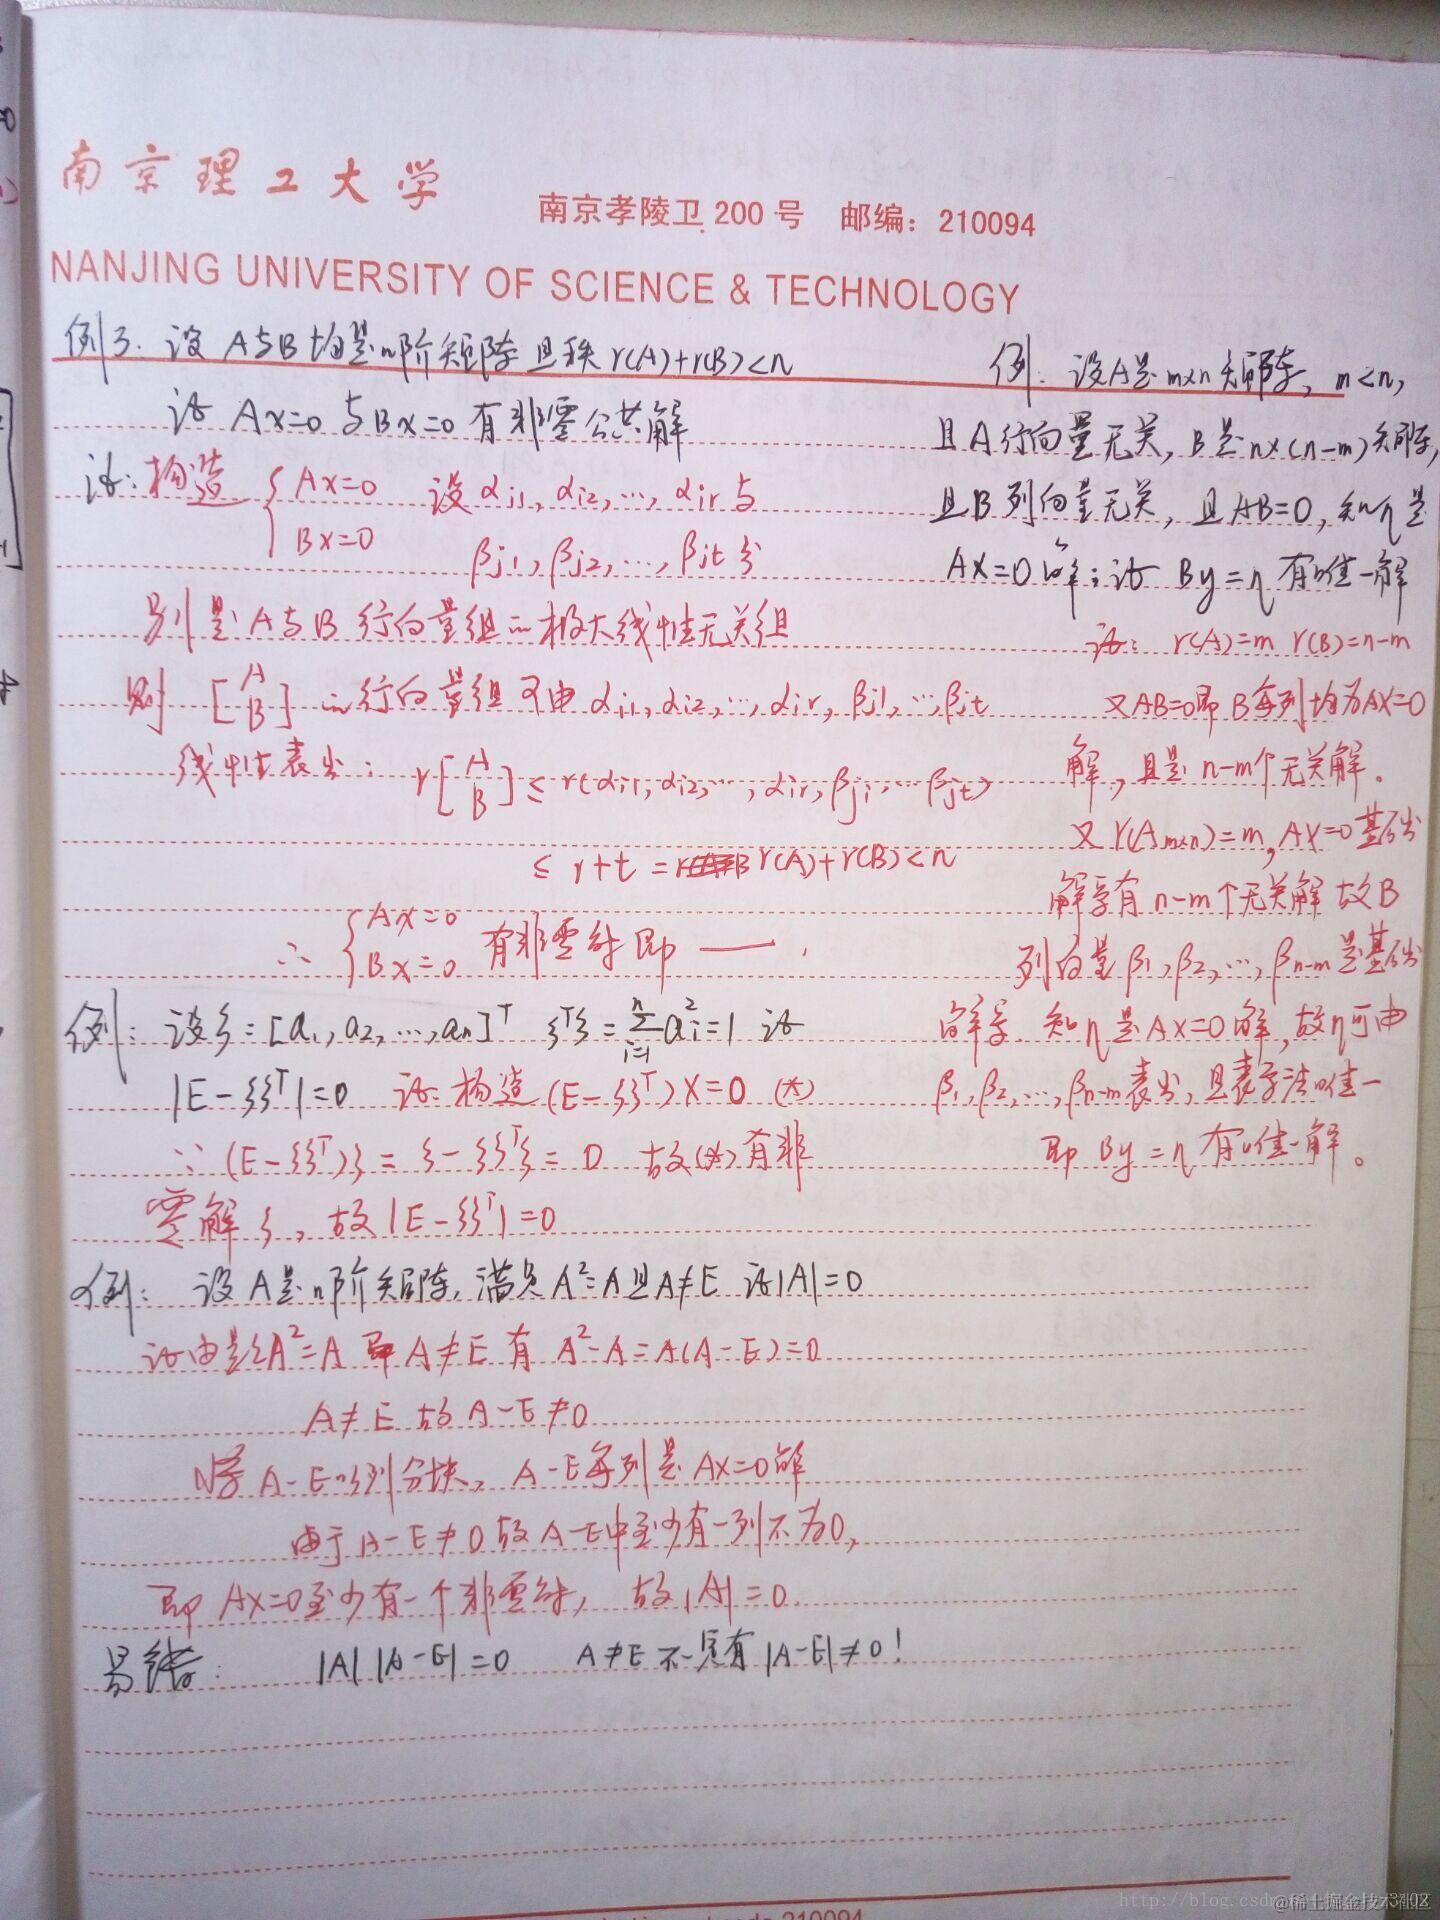 南京理工大学
南京孝陵卫 200 号 邮编：210094
NANJING UNIVERSITY OF SCIENCE & TECHNOLOGY
例3. 设 A与B均是n阶矩阵且秩 r(A)+r(B)<n
证 Ax=0 与Bx=0 有非零公共解
证: 构造 { Ax=0 设 αi1, αi2, ..., αir 与
Bx=0 βj1, βj2, ..., βjt 分
别是A与B行向量组的极大线性无关组
则 [A B] 的行向量组可由 αi1, αi2, ..., αir, βj1, ..., βjt
线性表出: r[A B] ≤ r(αi1, αi2, ..., αir, βj1, ... βjt)
≤ r+t = r(A)+r(B)<n
∴ { Ax=0 Bx=0 有非零解 即 —— .
例: 设ξ=[a1, a2, ..., an]ᵀ ξᵀξ=∑ⁿᵢ₌₁ aᵢ²=1 证
|E-ξξᵀ|=0 证: 构造 (E-ξξᵀ)X=0 (*)
∵ (E-ξξᵀ)ξ = ξ-ξξᵀξ = 0 故(*)有非
零解 ξ, 故 |E-ξξᵀ|=0
例: 设 A是n阶矩阵, 满足 A²=A且A≠E 证|A|=0
证由题A²=A 即 A≠E 有 A²-A=A(A-E)=0
A≠E 故 A-E≠0
将 A-E以列分块, A-E每列是 Ax=0解
由于 A-E≠0 故 A-E中至少有一列不为0,
即 Ax=0至少有一个非零解, 故|A|=0.
易错: |A| |A-E|=0 A≠E 不一定有 |A-E|≠0!
例: 设A是m×n矩阵, m<n,
且A行向量无关, B是n×(n-m)矩阵,
且B列向量无关, 且AB=0, 知η是
AX=0 解; 证 By=η 有唯一解
证: r(A)=m r(B)=n-m
又AB=0即 B每列均为AX=0
解, 且是 n-m个无关解.
又 r(Am×n)=m, AX=0基础
解系有 n-m个无关解 故B
列向量 β1, β2, ..., βn-m 是基础
解系. 知η是AX=0解, 故η可由
β1, β2, ..., βn-m 表出, 且表示法唯一
即 By=η 有唯一解。
http://blog.csdn
@稀土掘金技术社区
210094